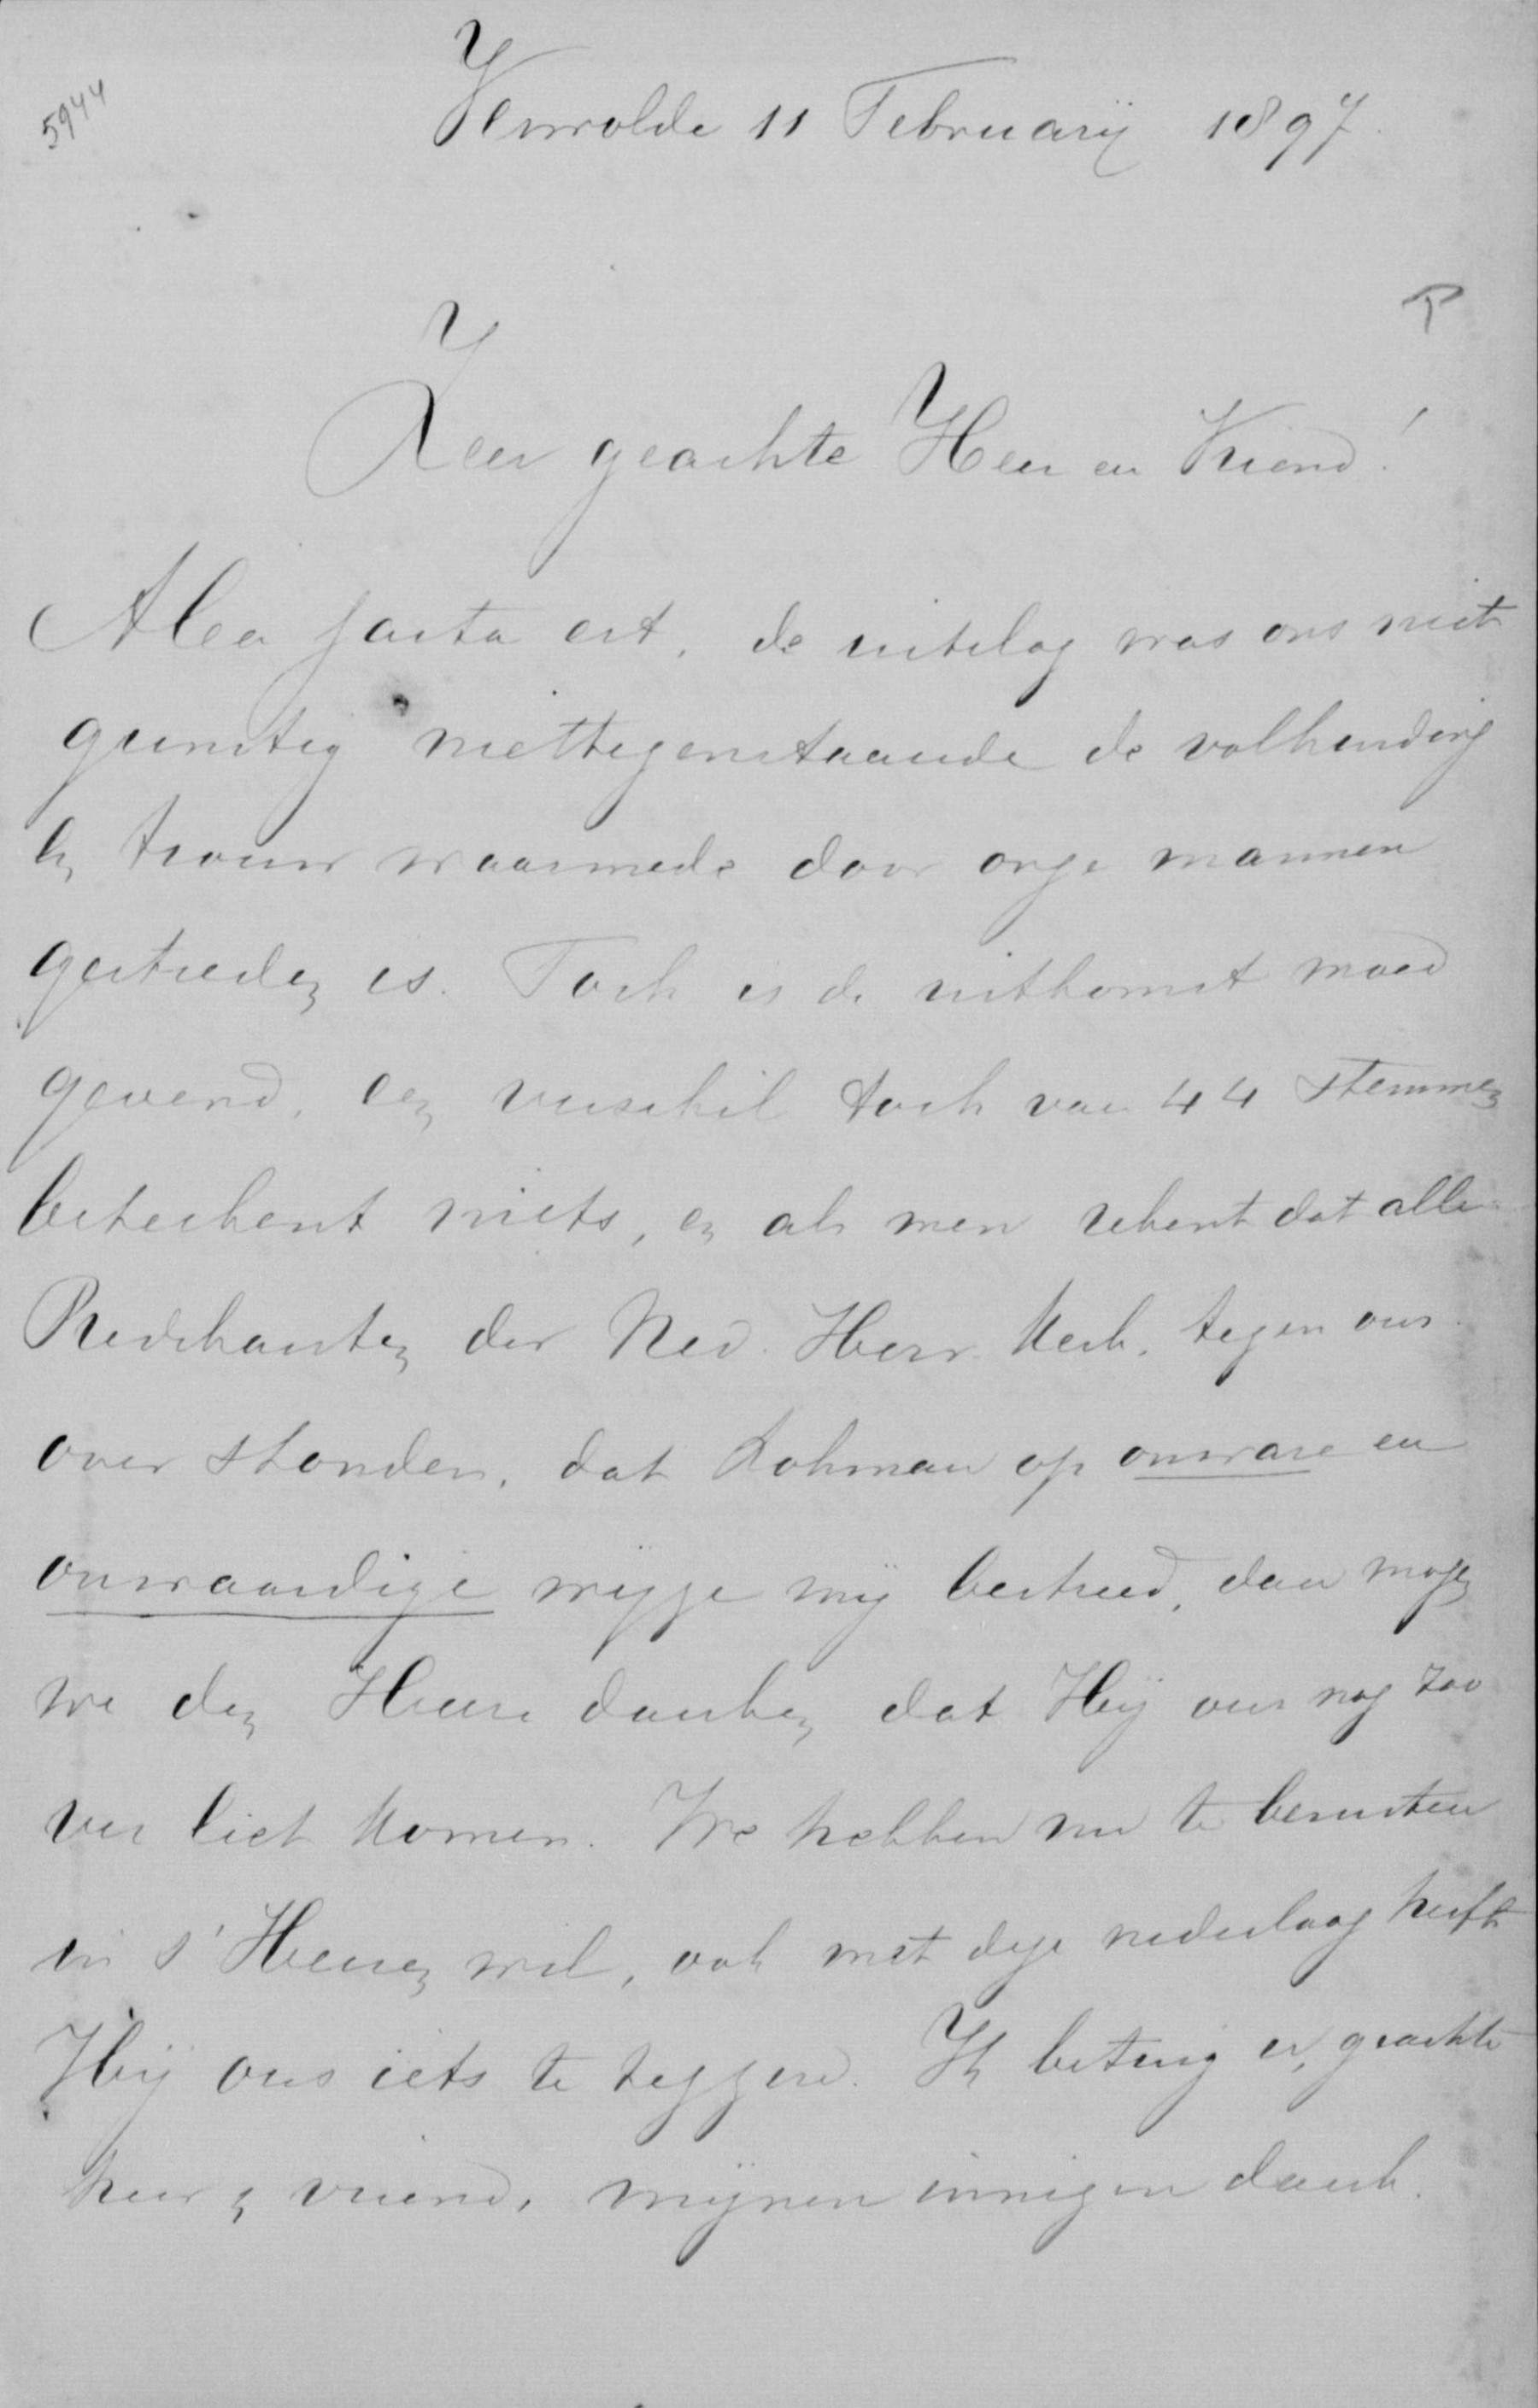 5944
Vorwolde 11 Februarij 1897.
P
Zeer geachte Heer en Vriend!
Alea jacta est, de uitslag was ons niet
gunstig niettegenstaande de volharding
en trouw waarmede door onze mannen
gestreden is. Toch is de uitkomst moed
gevend, een verschil toch van 44 stemmen
beteekent niets, en als men rekent dat alle
Predikanten der Ned. Herv. Kerk. tegen ons
over stonden, dat Lohman op onware en
onwaardige wijze mij bestreed, dan mogen
we den Heere danken dat Hij ons nog zoo
ver liet komen. We hebben nu te berusten
in s' Heeren wil, ook met deze nederlaag heeft
Hij ons iets te zeggen. Ik betuig u, geachte
heer en vriend, mijnen innigen dank.